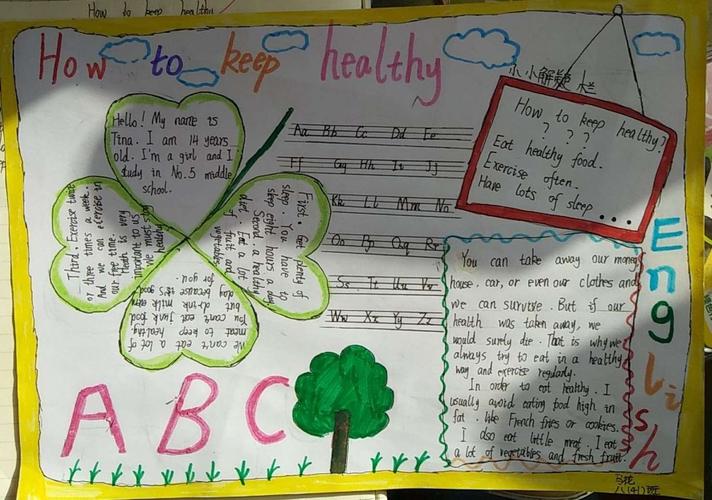 How to keep healthy
How to keep healthy
小小解疑栏
How to keep healthy?
? ? ?
Eat healthy food.
Exercise often.
Have lots of sleep
....
Hello! My name is
Tina. I am 14 years
old. I'm a girl and I
study in No.5 middle
school.
First. Get plenty of
sleep. You have to
sleep eight hours a
Second a healthy
Eat a lot
of fruit and
vegetables
We can't eat a lot of
meat to keep healthy
You can't eat junk food
but drink milk
day because it's good
for you.
Third. Exercise
or three times a week.
And we can exercise in
our free time.
Health is very
important to us
we must stay
healthy
Aa Bb Cc Dd Ee
Ff Gg Hh Ii Jj
Kk Ll Mm Nn
Oo Pp Qq Rr
Ss Tt Uu Vv
Ww Xx Yy Zz
You can take away our money
house, car, or even our clothes and
we can survive. But if our
health was taken away, we
would surely die. That is why we
always try to eat in a healthy
way and exercise regularly.
In order to eat healthy. I
usually avoid eating food high in
fat. like French fries or cookies.
I also eat little meat. I eat
a lot of vegetables and fresh fruit.
English
A B C
八(4)班